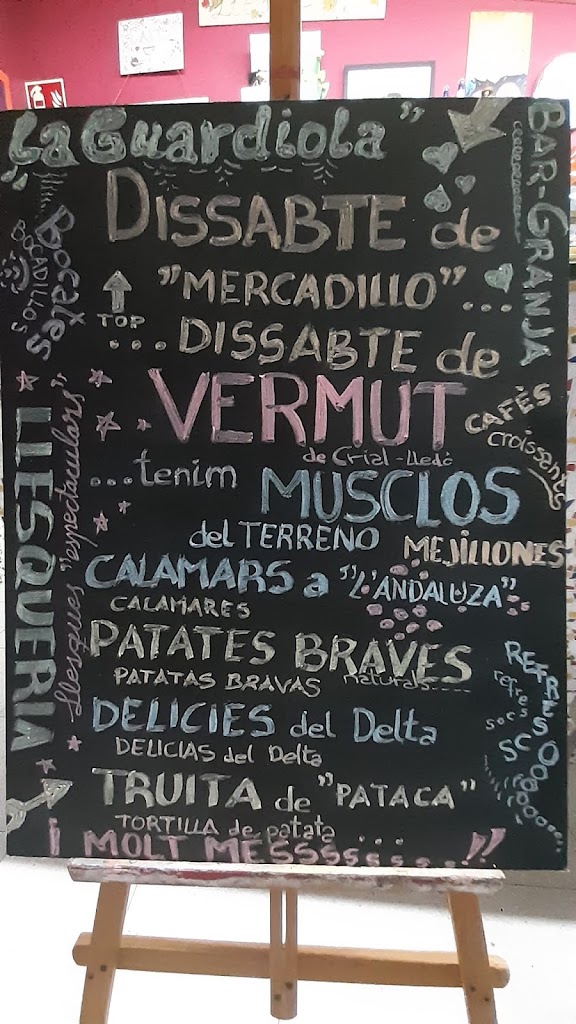 "La Guardiola"
BAR-GRANJA
DISSABTE de
"MERCADILLO"...
TOP
...DISSABTE de
VERMUT
de Crial-Lledó
...tenim MUSCLOS
del TERRENO
MEJILLONES
CALAMARS a "L'ANDALUZA"
CALAMARES
PATATES BRAVES
PATATAS BRAVAS naturals.....
DELICIES del Delta
DELICIAS del Delta
TRUITA de "PATACA"
TORTILLA de patata
I MOLT MÉSSSsssss....!!
Bocates
BOCADILLOS
LLESQUERIA
Llesques "espectaculars"
CAFÈS
croissants
REFRESCOS
refrescs